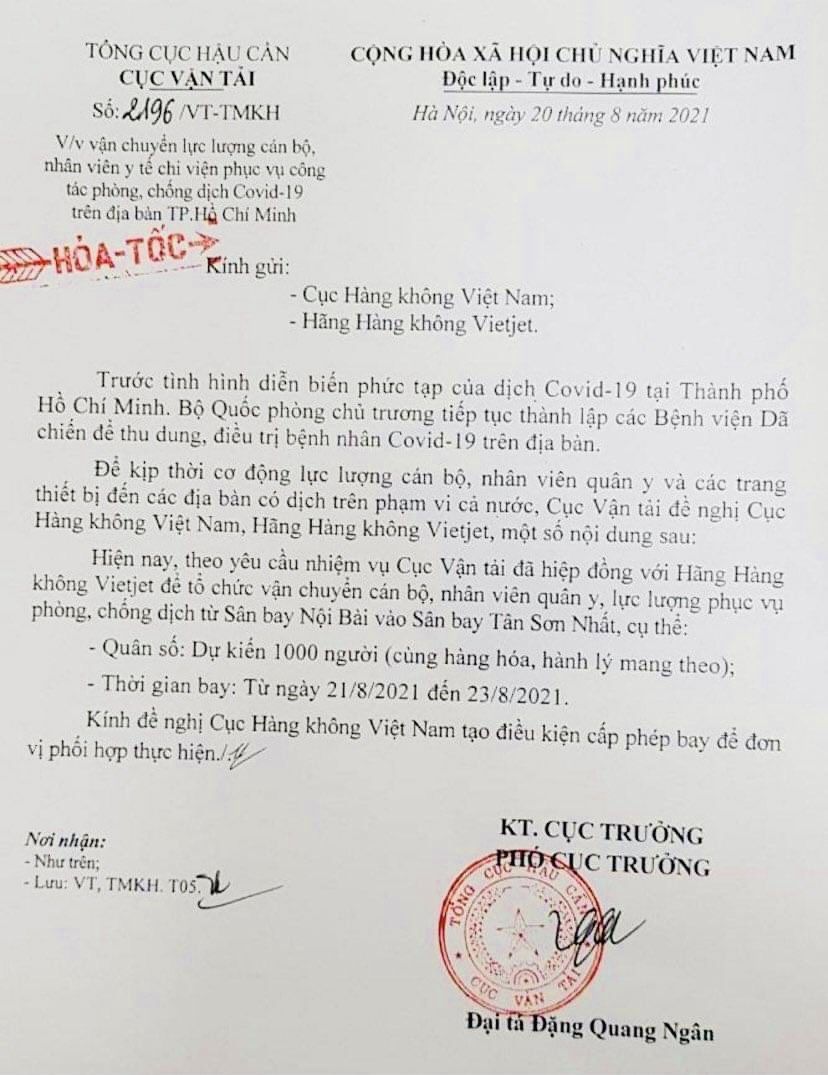 TỔNG CỤC HẬU CẦN
CỤC VẬN TẢI
Số: 2196/VT-TMKH
V/v vận chuyển lực lượng cán bộ,
nhân viên y tế chi viện phục vụ công
tác phòng, chống dịch Covid-19
trên địa bàn TP.Hồ Chí Minh
CỘNG HÒA XÃ HỘI CHỦ NGHĨA VIỆT NAM
Độc lập - Tự do - Hạnh phúc
Hà Nội, ngày 20 tháng 8 năm 2021
HỎA-TỐC
Kính gửi:
- Cục Hàng không Việt Nam;
- Hãng Hàng không Vietjet.
Trước tình hình diễn biến phức tạp của dịch Covid-19 tại Thành phố
Hồ Chí Minh. Bộ Quốc phòng chủ trương tiếp tục thành lập các Bệnh viện Dã
chiến để thu dung, điều trị bệnh nhân Covid-19 trên địa bàn.
Để kịp thời cơ động lực lượng cán bộ, nhân viên quân y và các trang
thiết bị đến các địa bàn có dịch trên phạm vi cả nước, Cục Vận tải đề nghị Cục
Hàng không Việt Nam, Hãng Hàng không Vietjet, một số nội dung sau:
Hiện nay, theo yêu cầu nhiệm vụ Cục Vận tải đã hiệp đồng với Hãng Hàng
không Vietjet để tổ chức vận chuyển cán bộ, nhân viên quân y, lực lượng phục vụ
phòng, chống dịch từ Sân bay Nội Bài vào Sân bay Tân Sơn Nhất, cụ thể:
- Quân số: Dự kiến 1000 người (cùng hàng hóa, hành lý mang theo);
- Thời gian bay: Từ ngày 21/8/2021 đến 23/8/2021.
Kính đề nghị Cục Hàng không Việt Nam tạo điều kiện cấp phép bay để đơn
vị phối hợp thực hiện./.
Nơi nhận:
- Như trên;
- Lưu: VT, TMKH. T05.
KT. CỤC TRƯỞNG
PHÓ CỤC TRƯỞNG
TỔNG CỤC HẬU CẦN
CỤC VẬN TẢI
Đại tá Đặng Quang Ngân